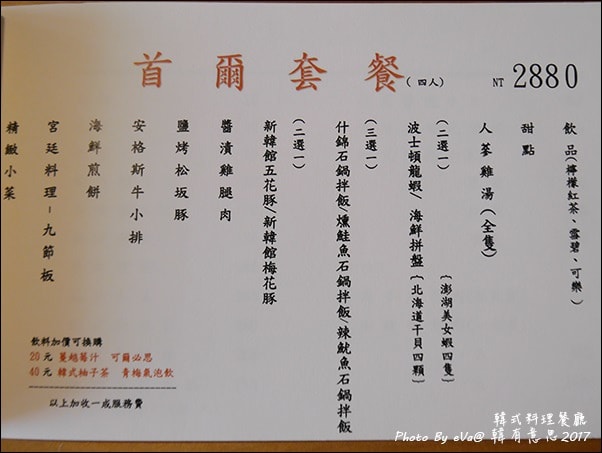 首爾套餐(四人) NT 2880
精緻小菜
宮廷料理-九節板
海鮮煎餅
安格斯牛小排
鹽烤松坂豚
醬漬雞腿肉
新韓館五花豚/新韓館梅花豚
(二選一)
什錦石鍋拌飯/燻鮭魚石鍋拌飯/辣魷魚石鍋拌飯
(三選一)
波士頓龍蝦/ 海鮮拼盤{北海道干貝四顆}
(二選一) {澎湖美女蝦四隻}
人蔘雞湯(全隻)
甜點
飲品(檸檬紅茶、雪碧、可樂)
飲料加價可換購
20 元 蔓越莓汁 可爾必思
40 元 韓式柚子茶 青梅氣泡飲
以上加收一成服務費
韓式料理餐廳
Photo By eVa@ 韓有意思 2017